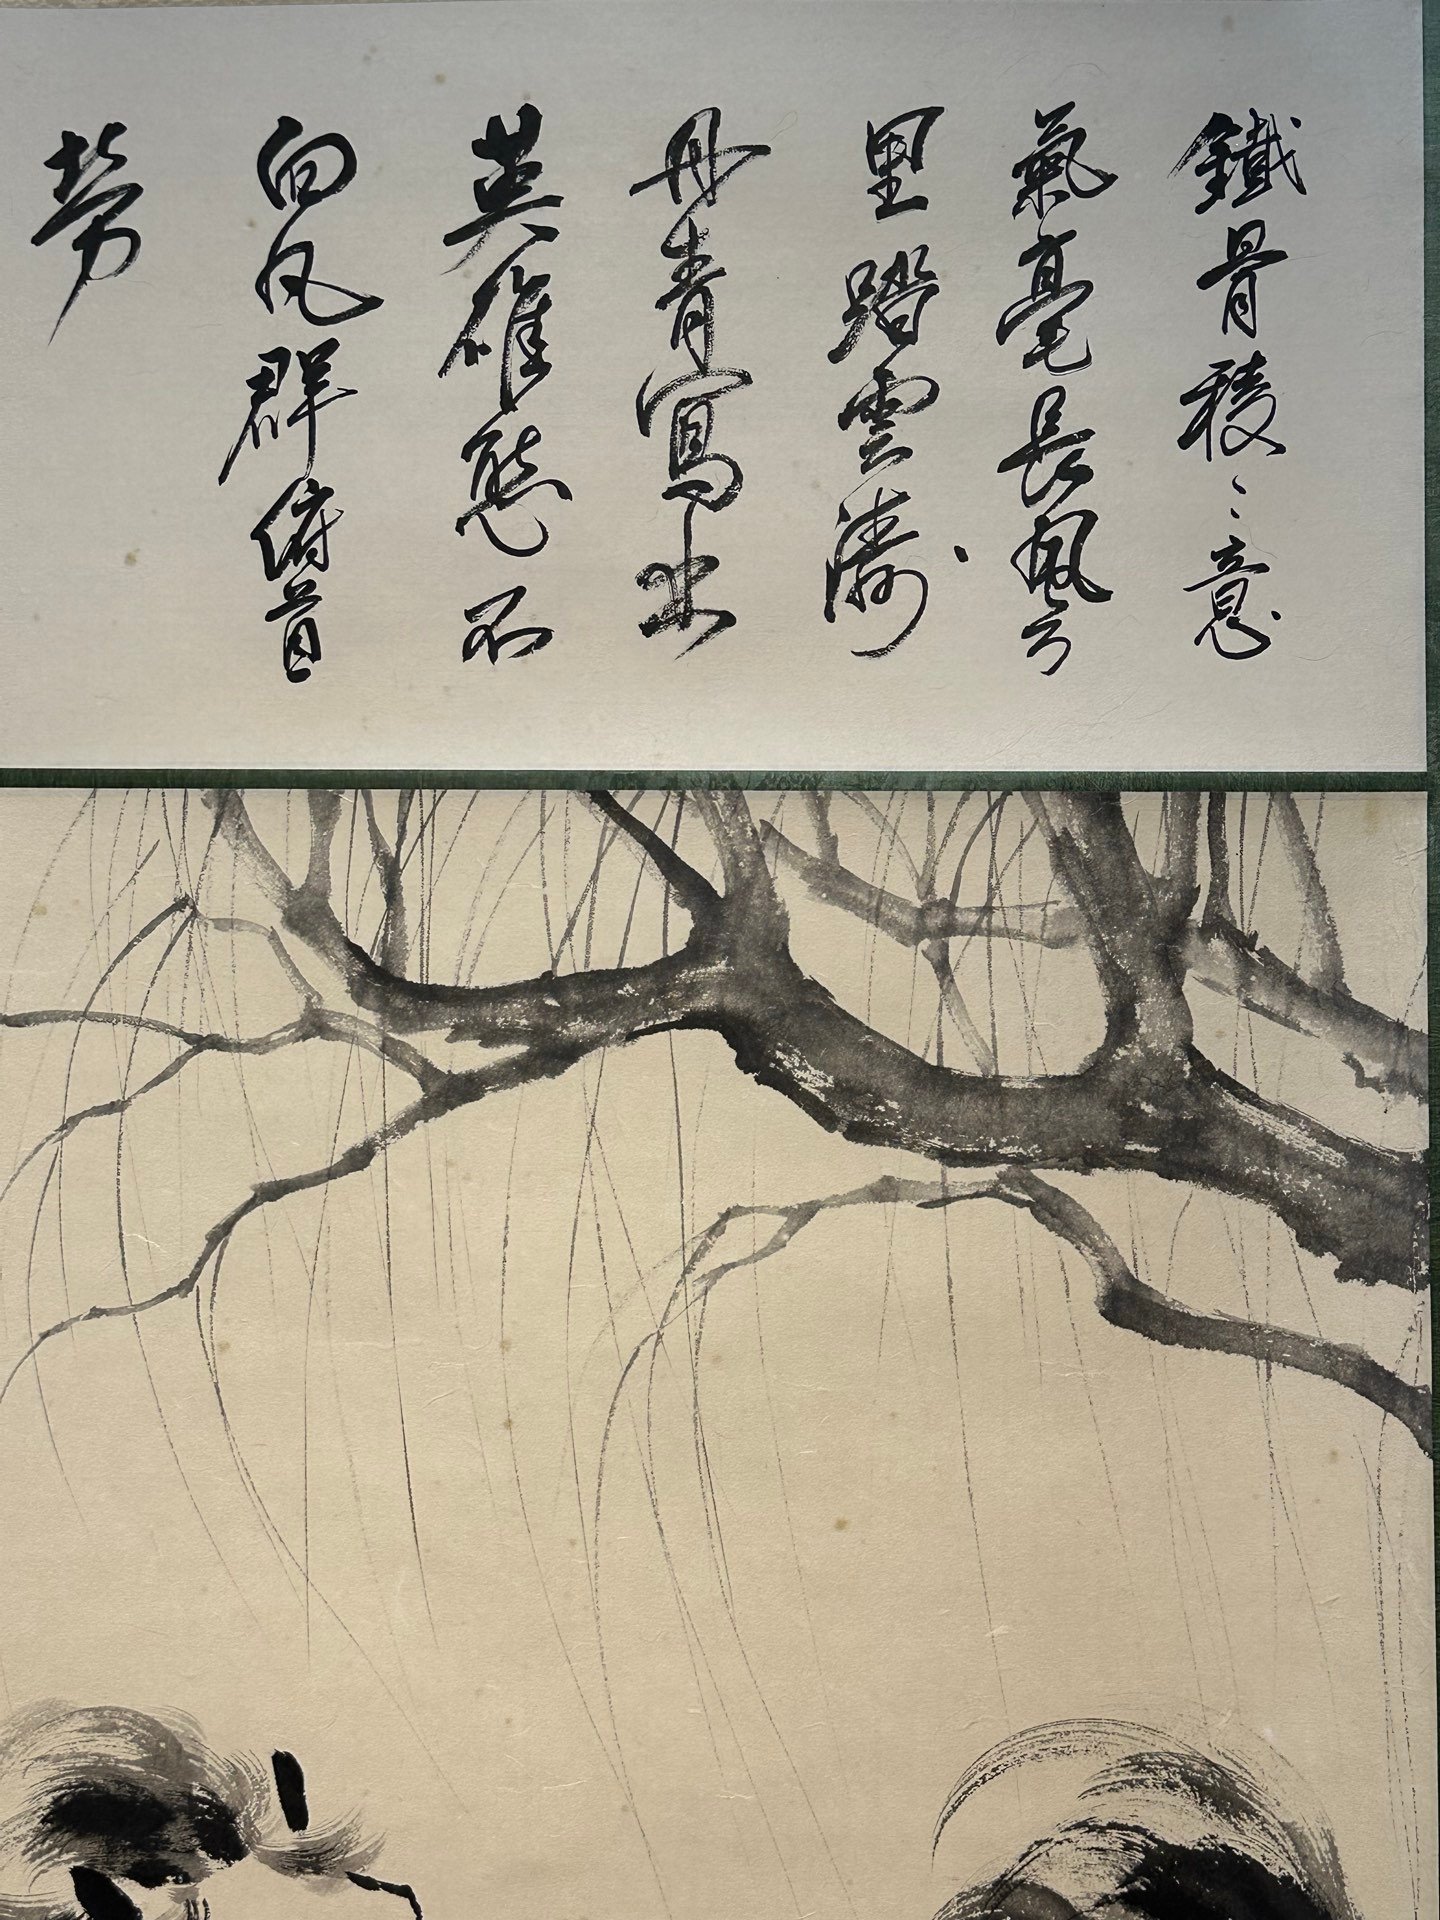 鐵骨稜々意
氣毫長風万
里踏雲濤
丹青寫出
英雄態不
向凡群俯首
勞